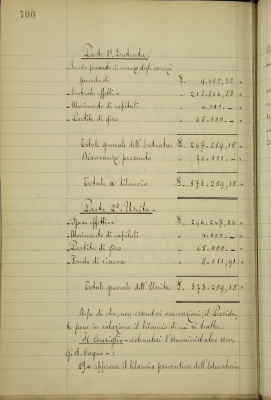 706
Parte 1ª Entrata.
Fondo presunto d'avanzo degli esercizi
precedenti £.
Entrate effettive "
Movimento di capitali " 4.000. — "
Partite di giro " 65.000. — "
Totale generale dell'Entrata £. 297.259,15 "
Disavanzo presunto " 76.000. — "
Totale a bilancio £. 373.259,15 "
Parte 2ª Uscita.
Spese effettive £. 296.247,24 "
Movimento di capitali " 4.000. — "
Partite di giro " 65.000. — "
Fondo di riserva " 8.011,91 "
Totale generale dell'Uscita £. 373.259,15 "
Dopo di che, non essendovi osservazioni, il Presiden-
te pone in votazione il bilancio di cui si tratta.
Il Consiglio - astenutosi l'Amministratore Avv.
G. B. Cagno - :
1º) = approva il bilancio preventivo dell'Educatorio